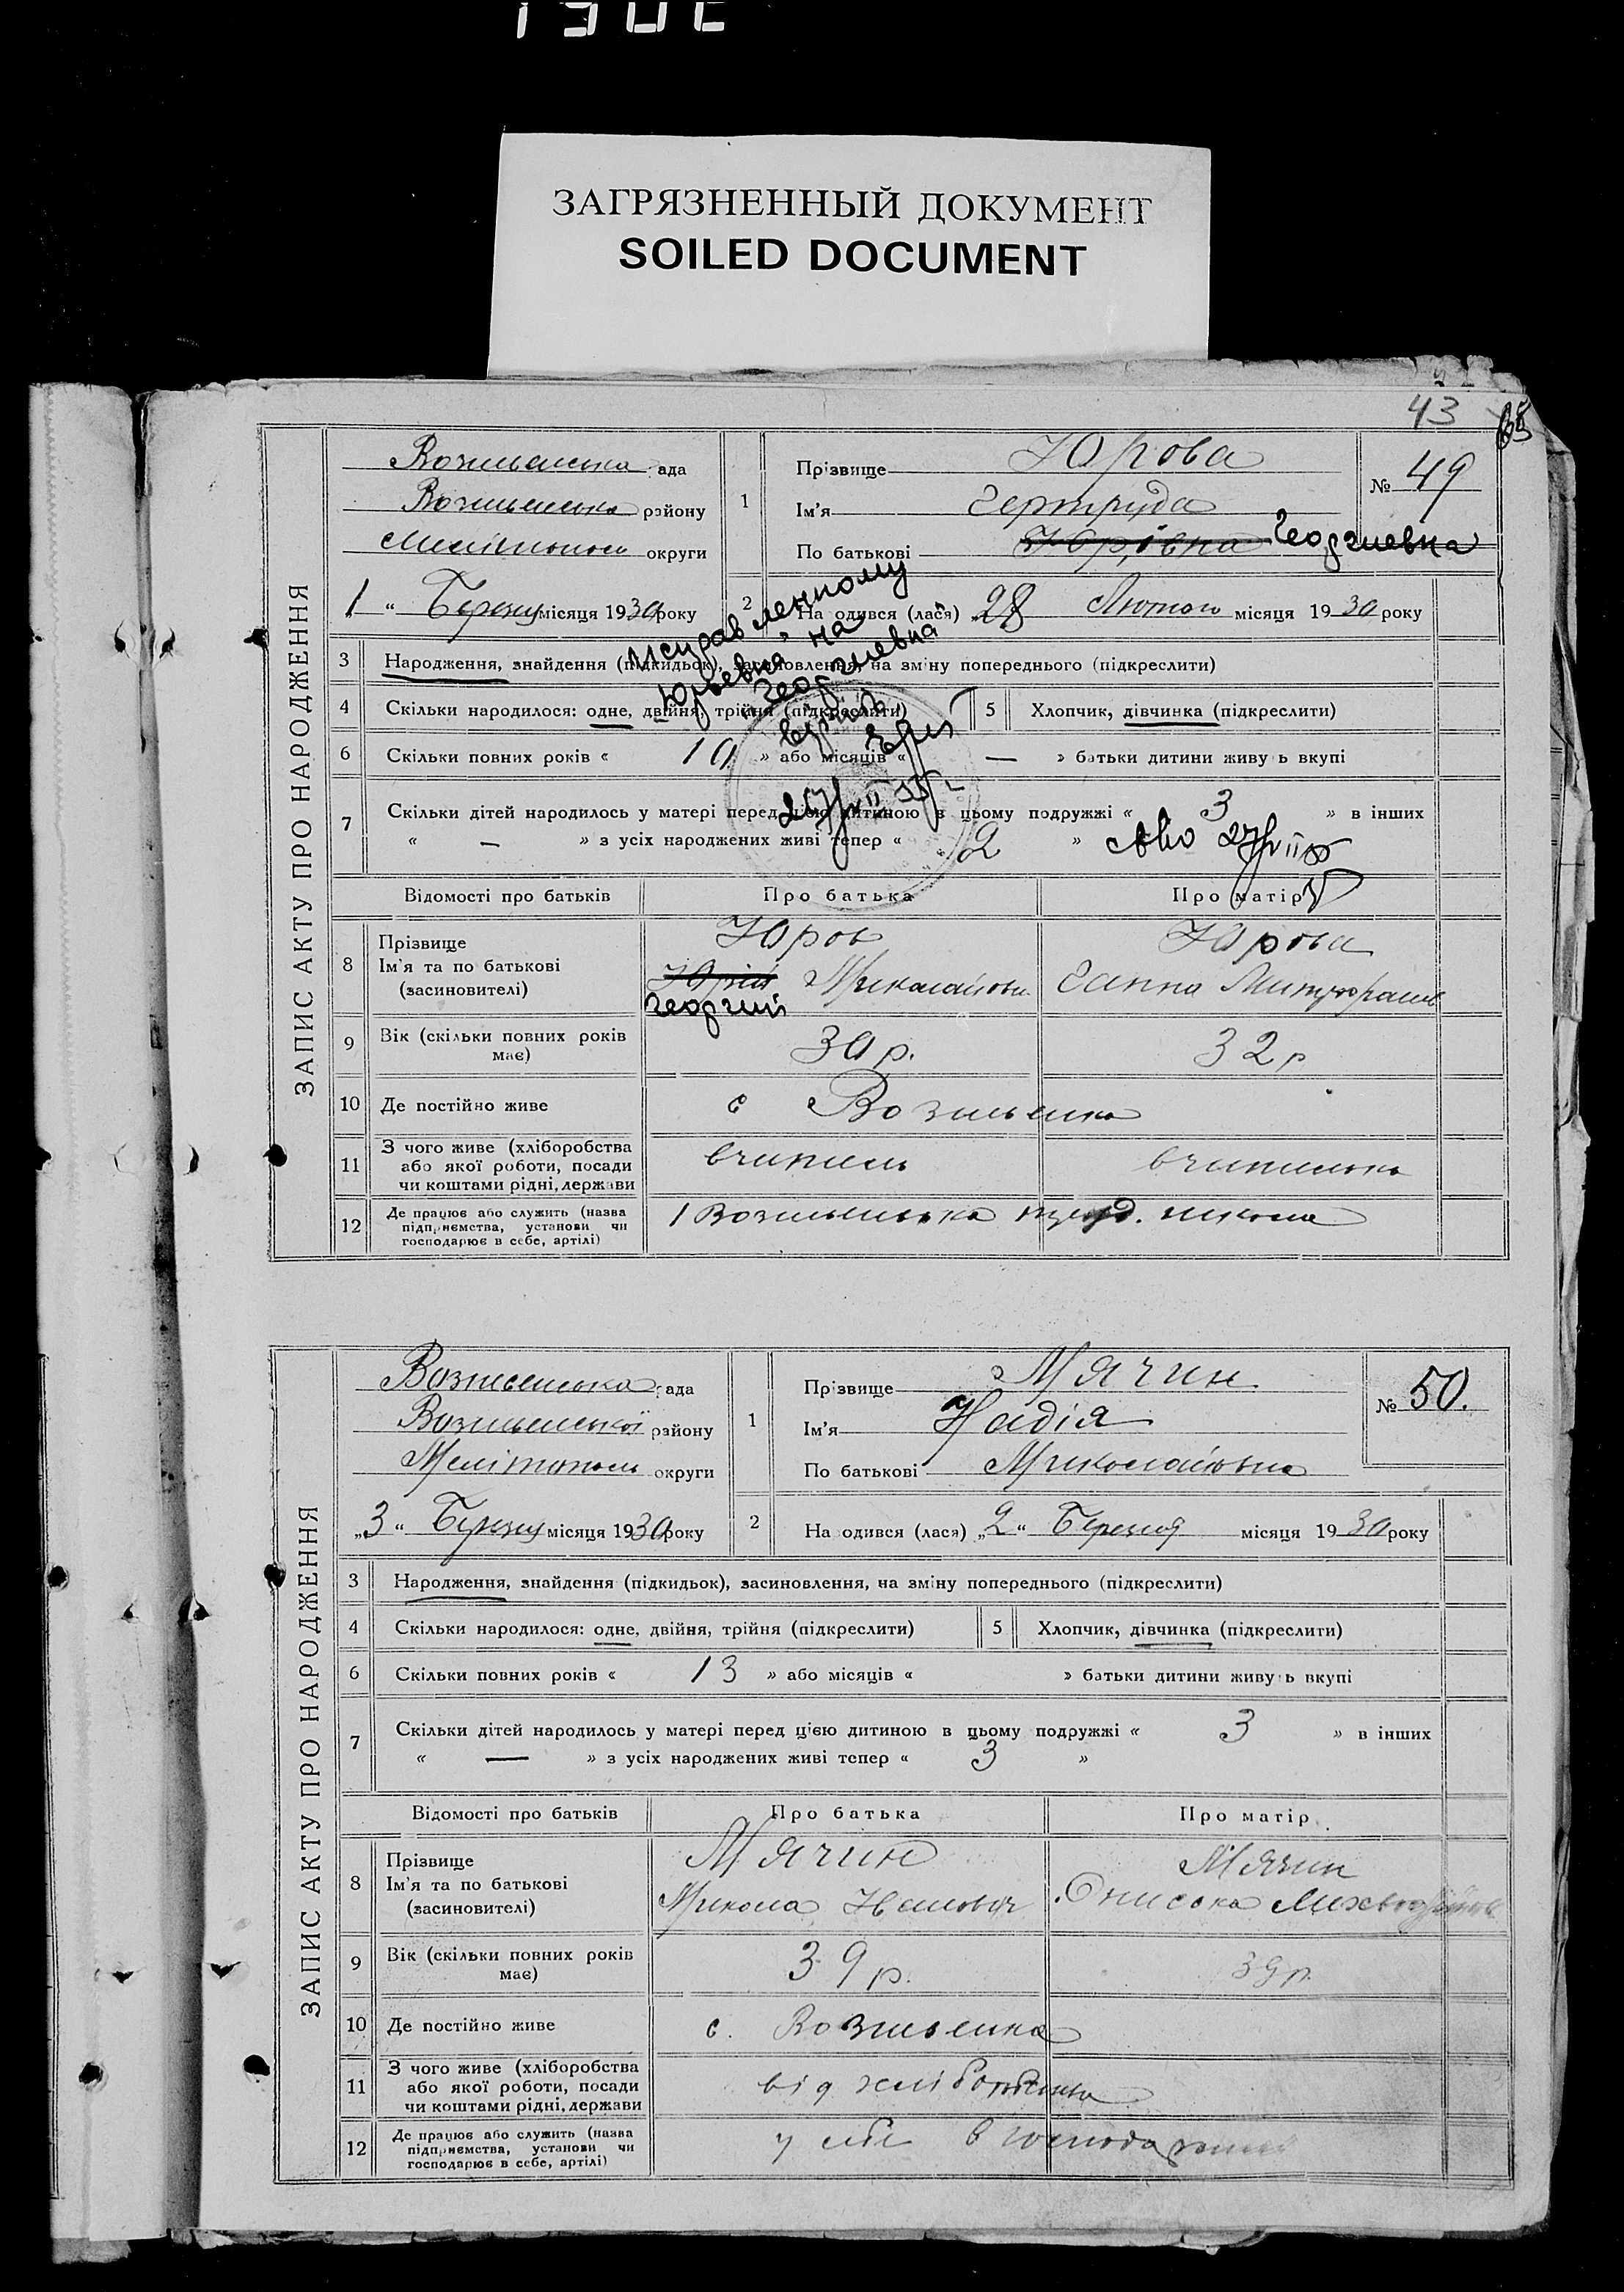 ЗАГРЯЗНЕННЫЙ ДОКУМЕНТ
SOILED DOCUMENT
43
ЗАПИС АКТУ ПРО НАРОДЖЕННЯ
Вознесенська рада
района
округи
1 “ Березня місяця 1930 року
1
Прізвище Юрова
Ім'я Гертруда
По батькові Юрівна Георгиевна
№ 49
2
На одився (лася) „28 Лютого місяця 1930 року
3 Народження, знайдення (підкидьок), засиновлення, на зміну попереднього (підкреслити)
4 Скільки народилося: одне, двійня, трійня (підкреслити)
5 Хлопчик, дівчинка (підкреслити)
6 Скільки повних років « 10 » або місяців « — » батьки дитини живуть вкупі
7 Скільки дітей народилось у матері перед цією дитиною в цьому подружжі « 3 » в інших
« — » з усіх народжених живі тепер « 2 »
Исправленному
Юрьевна на
Георгиевна
верить
Відомості про батьків Про батька Про матір
8 Прізвище
Ім'я та по батькові
(засиновителі)
Юров
Юрій Миколайович
Георгий
Юрова
Ганна
9 Вік (скільки повних років має)
30 р.
32 р
10 Де постійно живе
с Вознесенка
11 З чого живе (хліборобства
або якої роботи, посади
чи коштами рідні, держави
вчитель
вчителька
12 Де працює або служить (назва
підприємства, установи чи
господарює в себе, артілі)
1 Вознесенська труд. школа
ЗАПИС АКТУ ПРО НАРОДЖЕННЯ
Вознесенська рада
Вознесенської району
Мелітополь округи
„3 “ Березня місяця 1930 року
1
Прізвище Мячин
Ім'я Надія
По батькові Миколаївна
№ 50.
2
На одився (лася) „2 “ Березня місяця 1930 року
3 Народження, знайдення (підкидьок), засиновлення, на зміну попереднього (підкреслити)
4 Скільки народилося: одне, двійня, трійня (підкреслити)
5 Хлопчик, дівчинка (підкреслити)
6 Скільки повних років « 13 » або місяців « » батьки дитини живуть вкупі
7 Скільки дітей народилось у матері перед цією дитиною в цьому подружжі « 3 » в інших
« — » з усіх народжених живі тепер « 3 »
Відомості про батьків Про батька Про матір
8 Прізвище
Ім'я та по батькові
(засиновителі)
Мячин
Микола Іванович
Мячин
9 Вік (скільки повних років має)
39 р.
39 р.
10 Де постійно живе
с. Вознесенка
11 З чого живе (хліборобства
або якої роботи, посади
чи коштами рідні, держави
від хліборобства
12 Де працює або служить (назва
підприємства, установи чи
господарює в себе, артілі)
у себе в господарстві